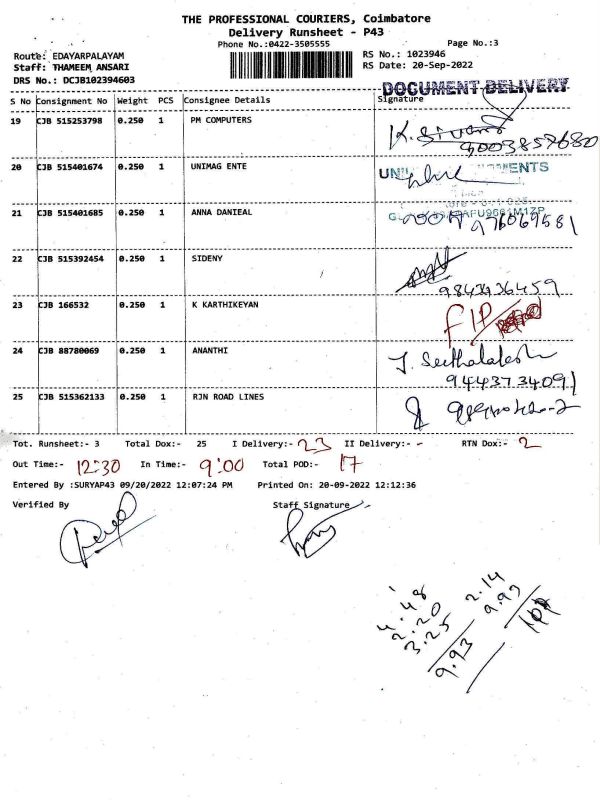 THE PROFESSIONAL COURIERS, Coimbatore
Delivery Runsheet - P43
Phone No.:0422-3505555
Page No.:3
Route: EDAYARPALAYAM
RS No.: 1023946
Staff: THAMEEM ANSARI
RS Date: 20-Sep-2022
DRS No.: DCJB102394603
DOCUMENT DELIVERY
S No Consignment No Weight PCS Consignee Details Signature
19 CJB 515253798 0.250 1 PM COMPUTERS
9003857680
20 CJB 515401674 0.250 1 UNIMAG ENTE
21 CJB 515401685 0.250 1 ANNA DANIEAL
22 CJB 515392454 0.250 1 SIDENY
9843936459
23 CJB 166532 0.250 1 K KARTHIKEYAN
24 CJB 88780069 0.250 1 ANANTHI
9443734091
25 CJB 515362133 0.250 1 RJN ROAD LINES
Tot. Runsheet:- 3 Total Dox:- 25 I Delivery:- 23 II Delivery:- - RTN Dox:- 2
Out Time:- 12:30 In Time:- 9:00 Total POD:- 17
Entered By :SURYAP43 09/20/2022 12:07:24 PM Printed On: 20-09-2022 12:12:36
Verified By Staff Signature
4.48
2.20
3.25
9.93
2.14
9.93